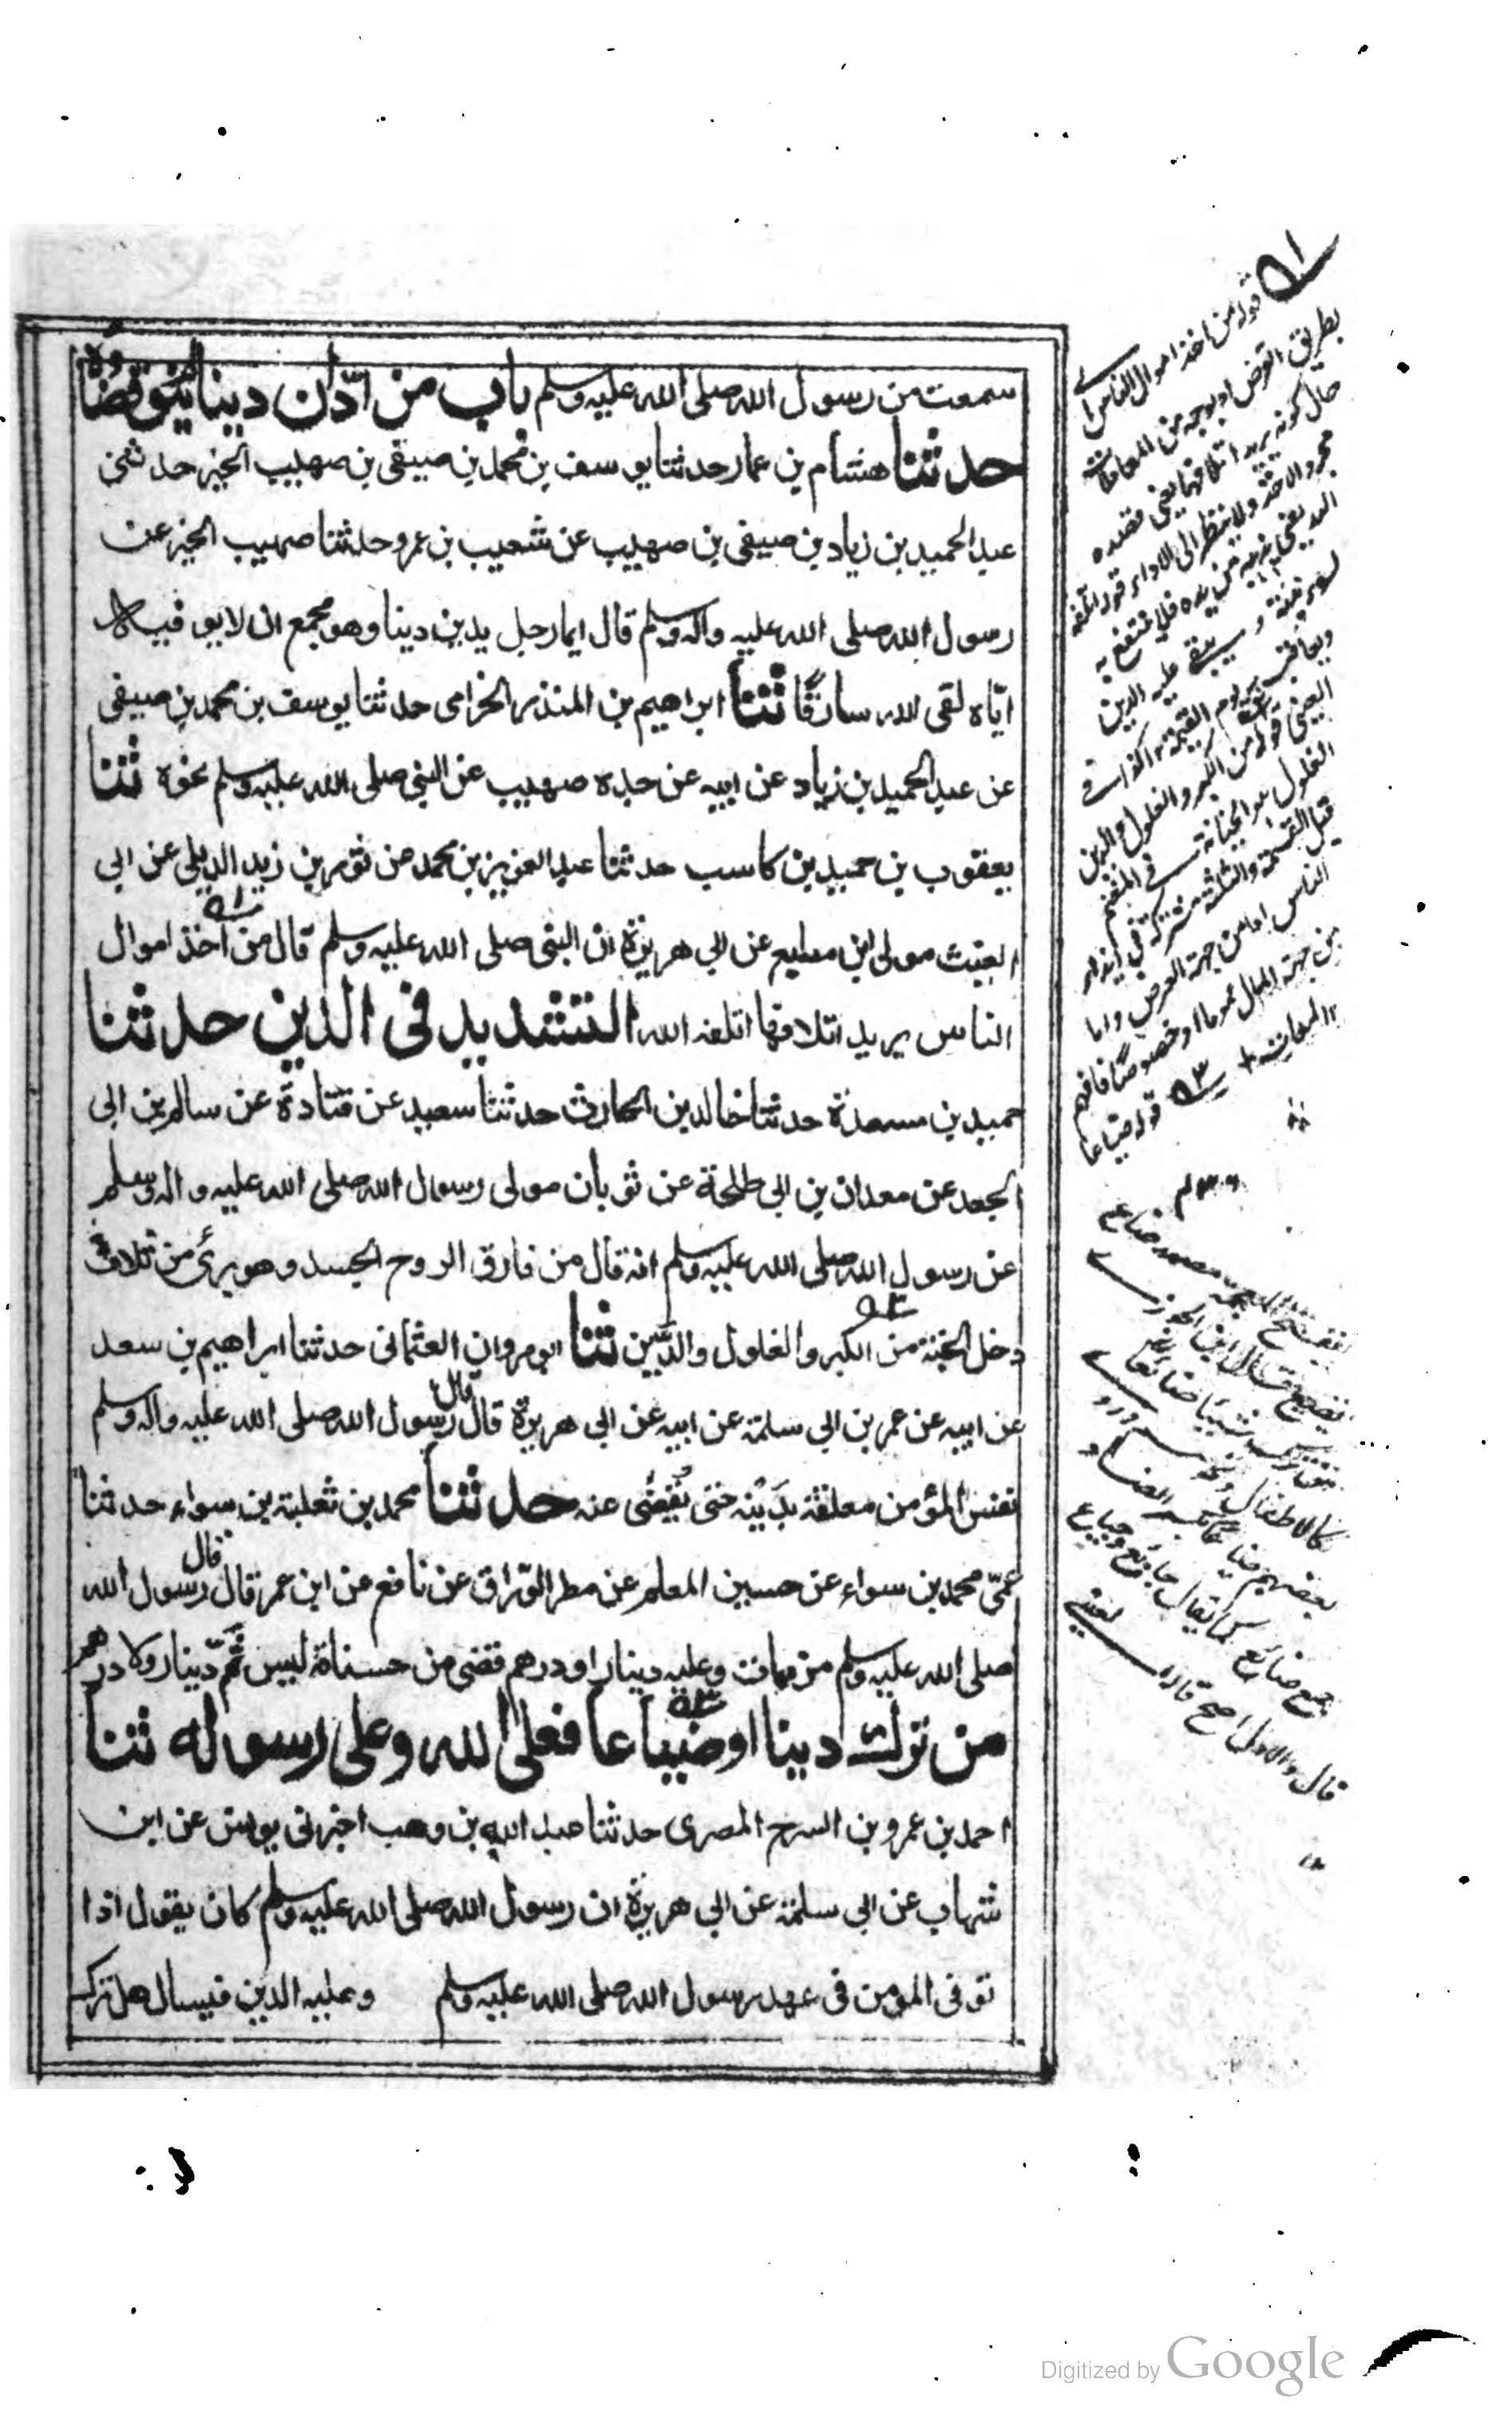 سمعت من رسول الله صلى الله عليه وسلم باب من ادّان دينا لم ينو قضاءه
حدثنا هشام بن عمار حدثنا يوسف بن محمد بن صيفى بن صهيب الخير حدثنى
عبد الحميد بن زياد بن صيفى بن صهيب عن شعيب بن عمرو حدثنا صهيب الخير عن
رسول الله صلى الله عليه واله وسلم قال ايما رجل يدين دينا وهو مجمع ان لا يوفيه
ايّاه لقى الله سارقًا ثنا ابراهيم بن المنذر الخزامى حدثنا يوسف بن محمد بن صيفى
عن عبد الحميد بن زياد عن ابيه عن جده صهيب عن النبى صلى الله عليه وسلم نحوه ثنا
يعقوب بن حميد بن كاسب حدثنا عبد العزيز بن محمد عن ثور بن زيد الديلى عن ابى
الغيث مولى ابن مطيع عن ابى هريرة ان النبى صلى الله عليه وسلم قال من اخذ اموال
الناس يريد اتلافها اتلفه الله التشديد فى الدين حدثنا
حميد بن مسعدة حدثنا خالد بن الحارث حدثنا سعيد عن قتادة عن سالم بن ابى
الجعد عن معدان بن ابى طلحة عن ثوبان مولى رسول الله صلى الله عليه واله وسلم
عن رسول الله صلى الله عليه وسلم انه قال من فارق الروح الجسد وهو برئ من ثلاث
دخل الجنة من الكبر والغلول والدَّين ثنا ابو مروان العثمانى حدثنا ابراهيم بن سعد
عن ابيه عن عمر بن ابى سلمة عن ابيه عن ابى هريرة قال قال رسول الله صلى الله عليه واله وسلم
نفس المؤمن معلقة بدَيْنه حتى يُقضٰى عنه حدثنا محمد بن ثعلبة بن سواء حدثنا
عمّى محمد بن سواء عن حسين المعلم عن مطر الورّاق عن نافع عن ابن عمر قال قال رسول الله
صلى الله عليه وسلم من مات وعليه دينار او درهم قضى من حسناته ليس ثَمَّ دينار ولا درهم
من ترك دينا او ضَياعا فعلى الله وعلى رسوله ثنا
احمد بن عمرو بن السرح المصرى حدثنا عبد الله بن وهب اخبرنى يونس عن ابن
شهاب عن ابى سلمة عن ابى هريرة ان رسول الله صلى الله عليه وسلم كان يقول اذا
توفى المؤمن فى عهد رسول الله صلى الله عليه وسلم وعليه الدين فيسال هل ترك
٥١ قوله من اخذ اموال الناس
بطريق القرض او بوجه من المعاملة
حال كونه يريد اتلافها يعنى قصده
مجرد الاخذ ولا ينظر الى الاداء قوله اتلفه
الله يعنى يذهبه من يده فلا ينتفع به
لسوء نيته ويبقى عليه الدين
ويعاقب به يوم القيمة كذا فى
العينى قوله من الكبر والغلول والدين
الغلول هو الخيانة فى المغنم
قبل القسمة والثلثة مشتركة فى ايذاء
الناس اما من جهة العرض واما
من جهة المال عموما او خصوصًا فافهم
٥٣ قوله ضياعا
بفتح المعجمة مصدر ضاع
يضيع قال ابن الجوزى
من ترك شيئا ضائعا
كالاطفال ونحوهم ورو
بعضهم ضياعا بكسر الضاد
جمع ضائع كما يقال جائع وجياع
قال والاول اصح قاله العينى
Digitized by Google